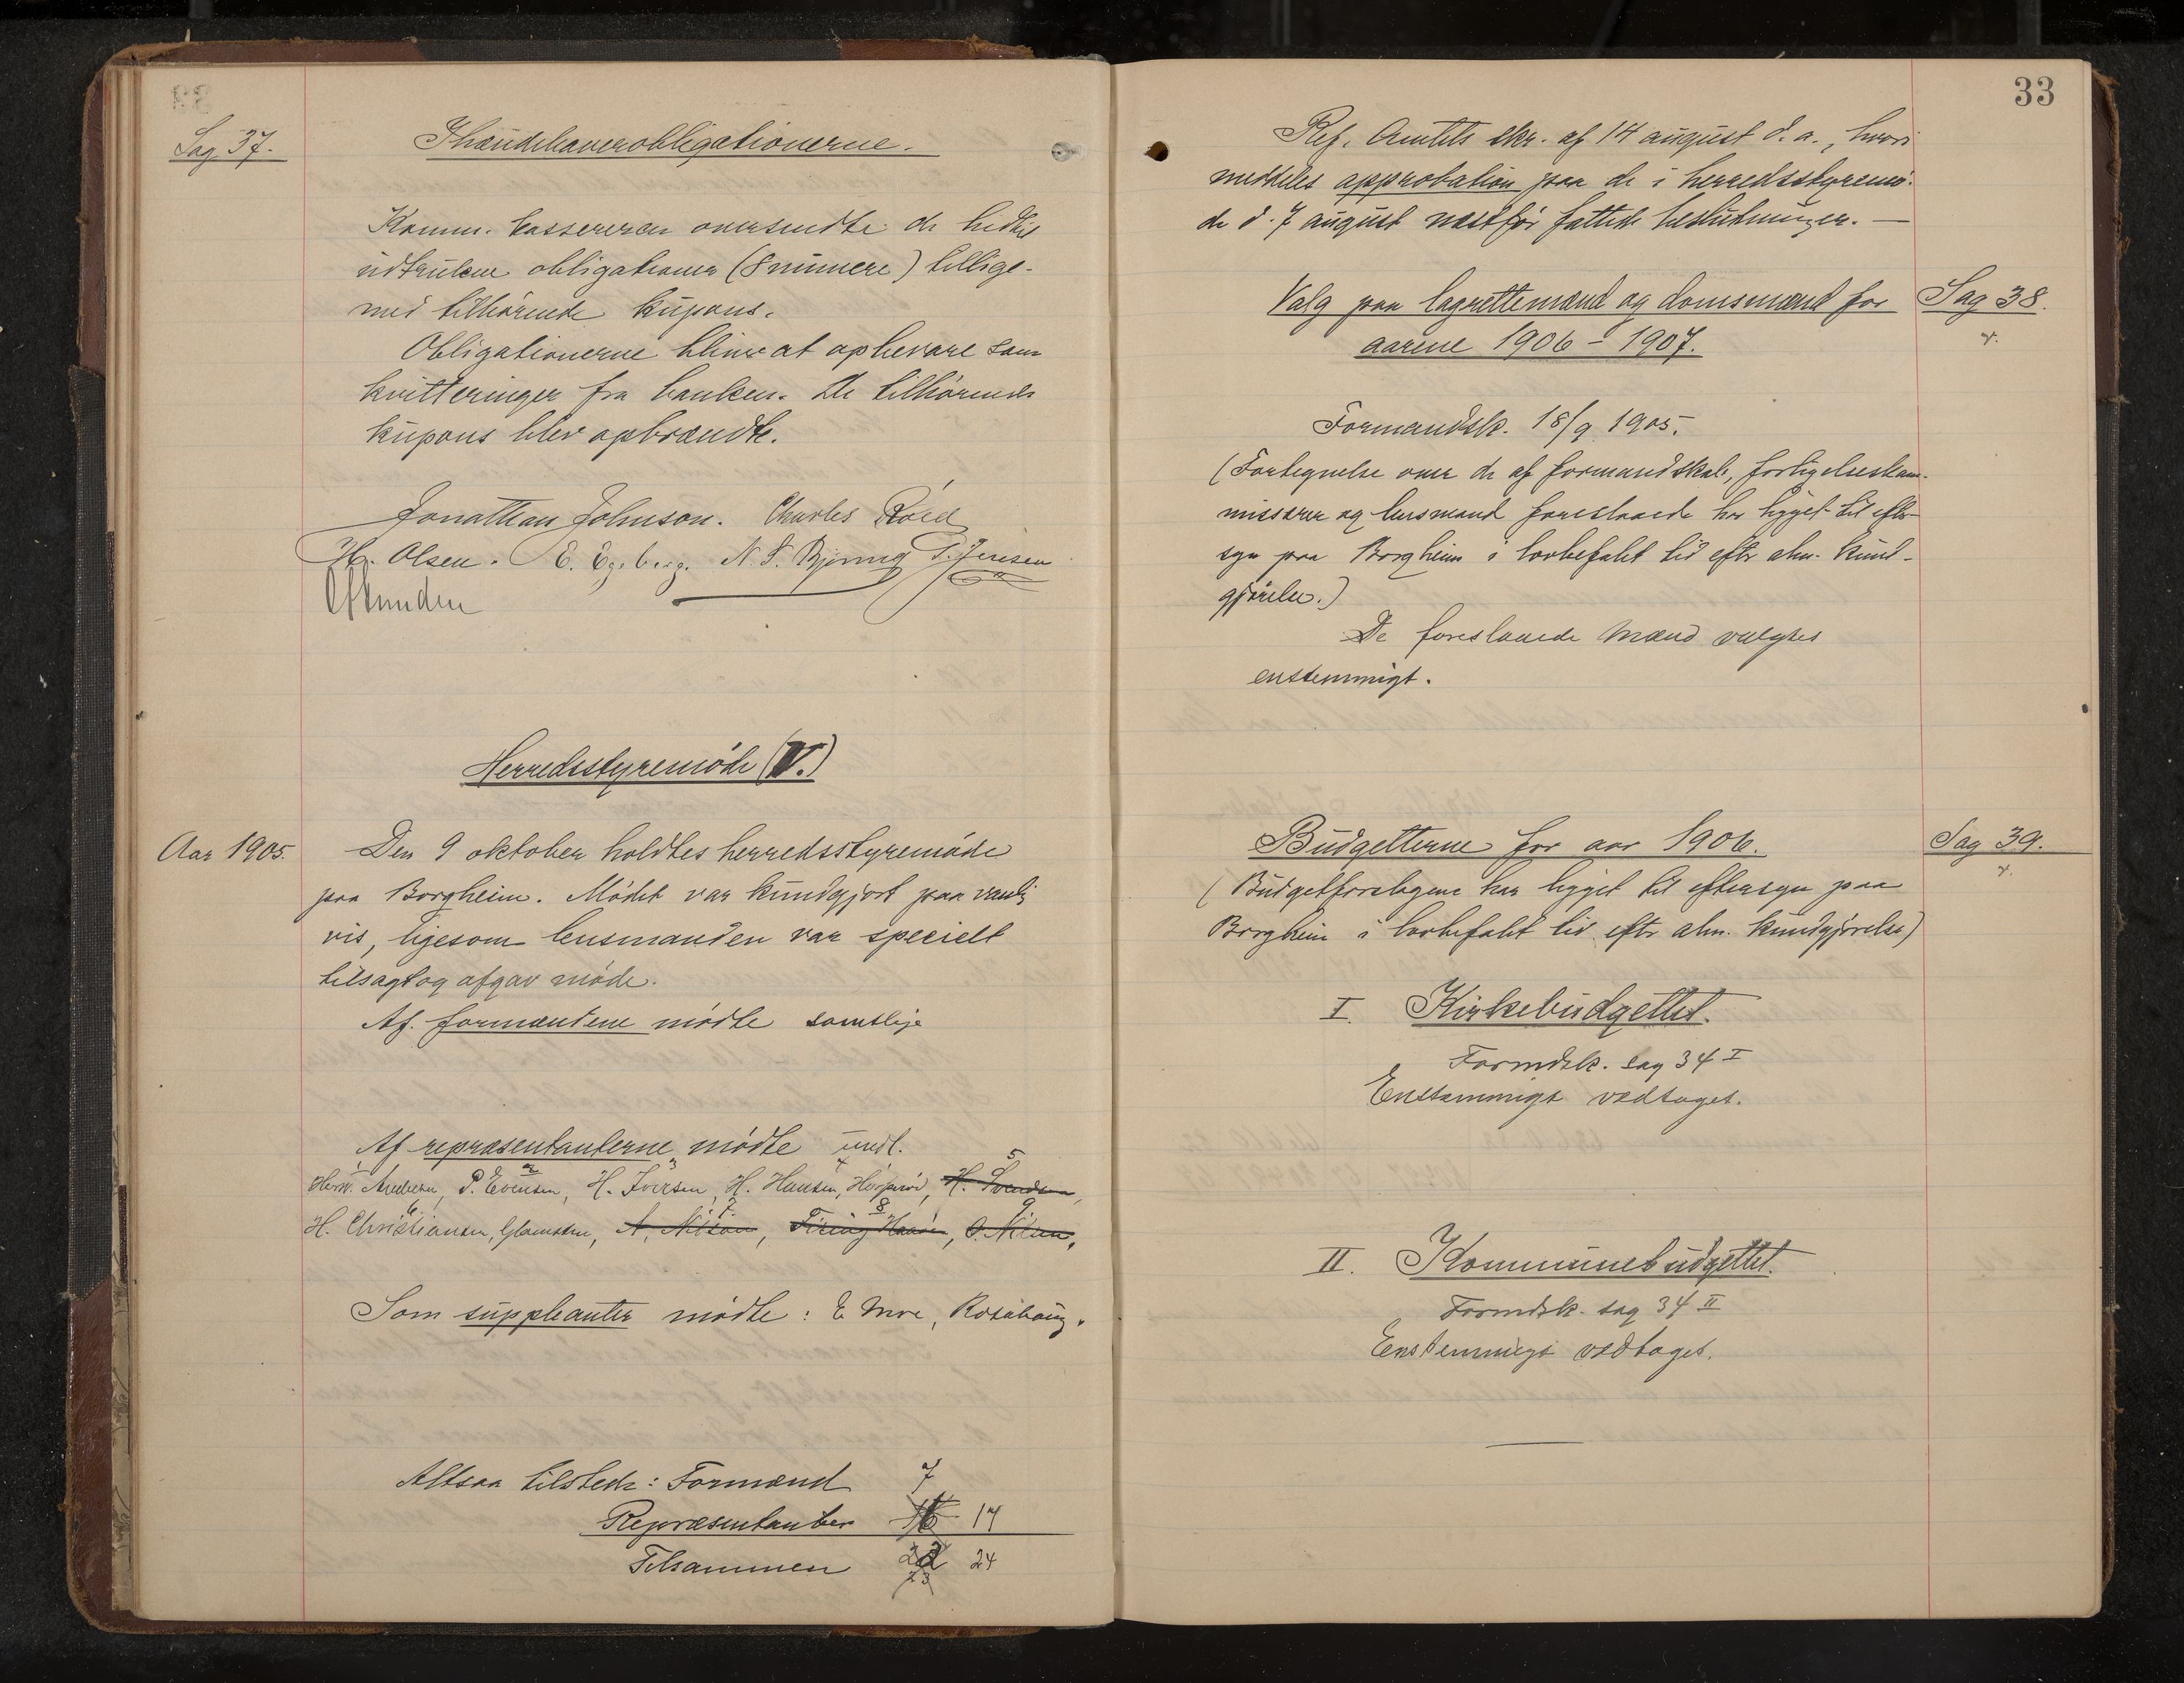 Sag 37.
Ihændehaverobligationerne.
Komm. kassereren oversendte de hidtil
udtrukne obligationer (8 numere) tillige-
med tilhørende kupons.
Obligationerne bliver at opbevare som
kvitteringer fra banken. De tilhørende
kupons blev opbrændte.
Jonathan Johnson. Charles Röed
H. Olsen. E. Egeberg. N. F. Bjerning T. Jensen
Herredsstyremöde (V.)
Aar 1905.
Den 9 oktober holdtes herredsstyremöde
paa Borgheim. Mödet var kundgjort paa vanlig
vis, ligesom lensmanden var specielt
tilsagt og afgav möde.
Af formændene mödte samtlige
Af repræsentanterne mödte undt.
5
P. Evensen, H. Iversen, H. Hansen, H. Svendsen,
6 7. 8 9.
H. Christiansen, Glomsten, A. Nilson, O. Nilsen,
Som suppleanter mödte: E. Moe, Rosahaug.
Altsaa tilstede: Formænd 7
Repræsentanter 16 17
Tilsammen 22 24
23
33
Ref. Amtets skr. af 14 august d. a., hvori
meddeles approbation paa de i herredsstyremö-
de d. 7 august næstför fattede beslutninger. —
Valg paa lagrettemænd og domsmænd for
Sag 38.
aarene 1906 - 1907.
Formandsk. 18/9 1905.
(Fortegnelse over de af formandskab, forligelseskom-
missærer og lensmand foreslaaede har ligget til efter-
syn paa Borgheim i lovbefalet tid efter alm. kund-
gjörelse.)
De foreslaaede mænd valgtes
enstemmigt.
Budgetterne for aar 1906.
Sag 39.
(Budgetforslagene har ligget til eftersyn paa
Borgheim i lovbefalet tid efter alm. kundgjörelse)
I. Kirkebudgettet.
Formdsk. sag 34 I
Enstemmigt vedtaget.
II. Kommunebudgettet.
Formdsk. sag 34 II
Enstemmigt vedtaget.